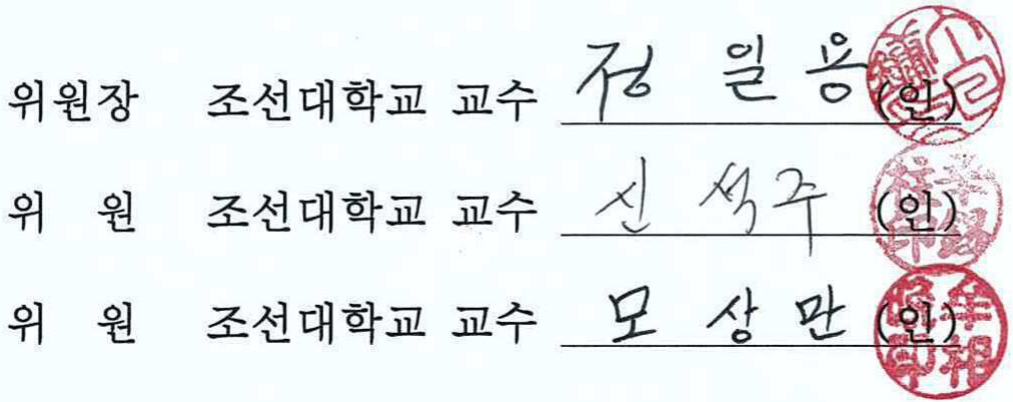 위원장 조선대학교 교수 정 일 용 (인)
위 원 조선대학교 교수 신 석 주 (인)
위 원 조선대학교 교수 모 상 만 (인)